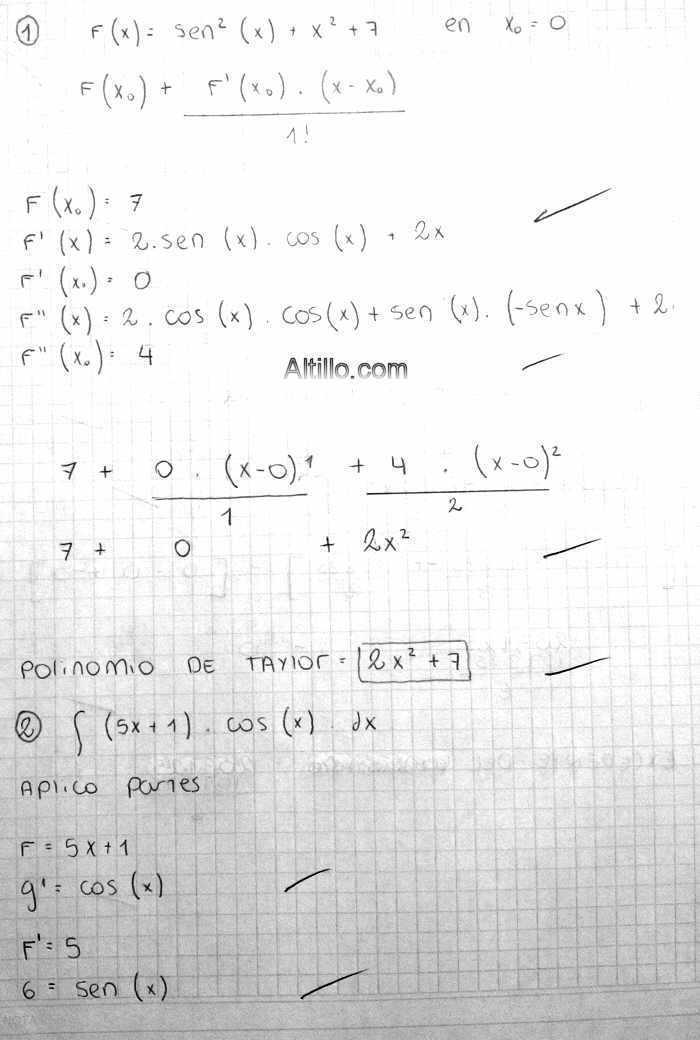 ① F(x) = sen² (x) + x² + 7 en x₀ = 0
F(x₀) + F'(x₀) . (x - x₀)
1!
F(x₀) = 7
F'(x) = 2.sen (x) . cos (x) + 2x
F'(x₀) = 0
F''(x) = 2 . cos (x) . cos(x) + sen (x) . (-senx) + 2.
F''(x₀) = 4
Altillo.com
7 + 0 . (x-0)¹ + 4 . (x-0)²
1 2
7 + 0 + 2x²
POLINOMIO DE TAYLOR = 2x² + 7
② ∫ (5x + 1) . cos (x) . dx
APLICO PARTES
F = 5x+1
g' = cos (x)
F' = 5
6 = sen (x)